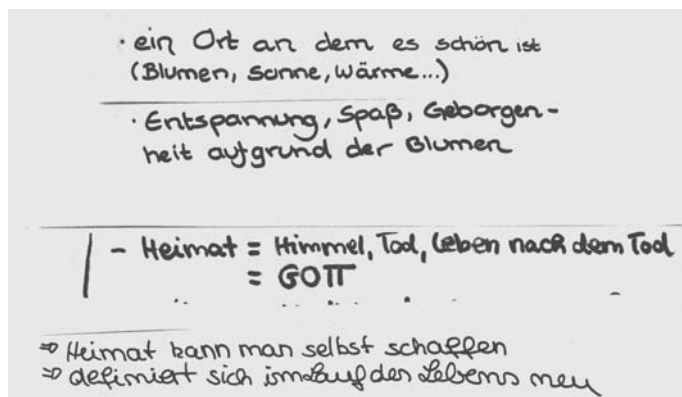 · ein Ort an dem es schön ist
(Blumen, Sonne, Wärme...)
· Entspannung, Spaß, Geborgen-
heit aufgrund der Blumen
- Heimat = Himmel, Tod, Leben nach dem Tod
= GOTT
⇒ Heimat kann man selbst schaffen
⇒ definiert sich im Lauf des Lebens neu